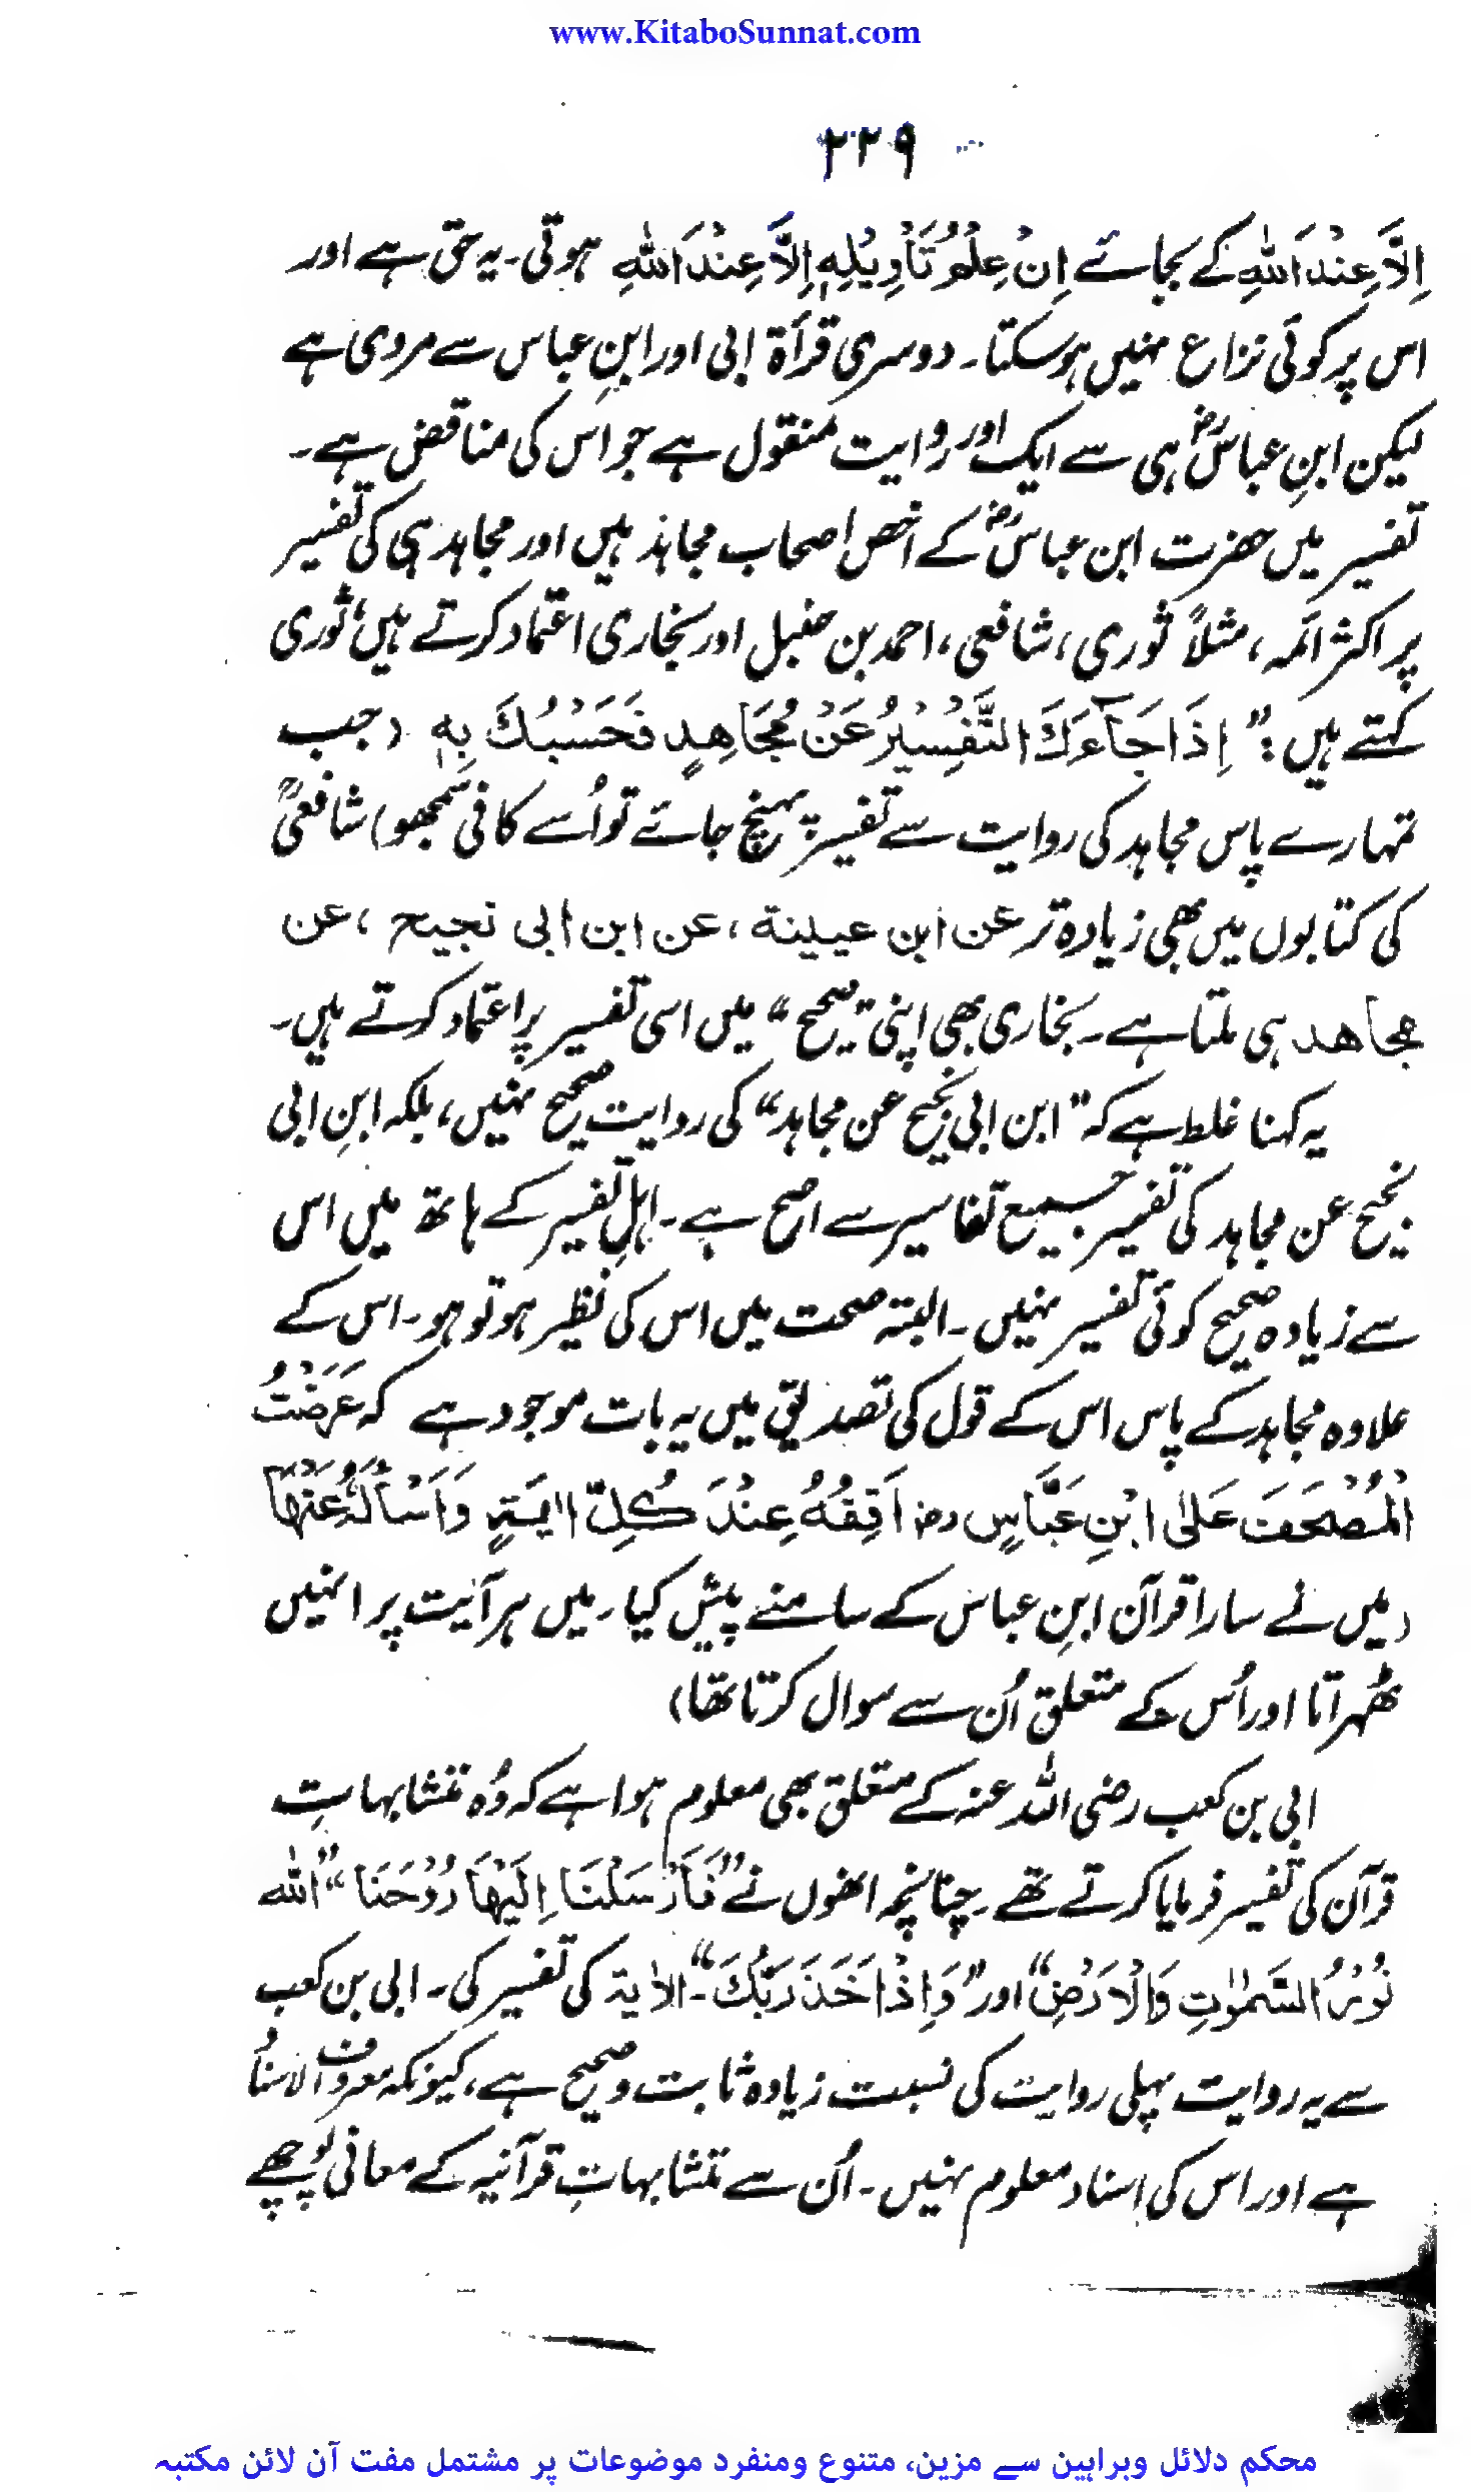 www.KitaboSunnat.com
۲۲۹
اِلَّا عِنْدَاللّٰهِ کے بجائے اِنْ عِلْمُ تَأْوِيْلِهٖ اِلَّا عِنْدَاللّٰهِ ہوتی۔ یہ حق ہے اور
اس پر کوئی نزاع نہیں ہوسکتا۔ دوسری قرأۃ ابی اور ابنِ عباس سے مروی ہے
لیکن ابنِ عباسؓ ہی سے ایک اور روایت منقول ہے جو اس کی مناقض ہے۔
تفسیر میں حضرت ابن عباسؓ کے اخص اصحاب مجاہد ہیں اور مجاہد ہی کی تفسیر
پر اکثر ائمہ، مثلاً ثوری، شافعی، احمد بن حنبل اور بخاری اعتماد کرتے ہیں، ثوری
کہتے ہیں: ”اِذَا جَآءَكَ التَّفْسِيْرُ عَنْ مُجَاهِدٍ فَحَسْبُكَ بِهٖ (جب
تمہارے پاس مجاہد کی روایت سے تفسیر پہنچ جائے تو اُسے کافی سمجھو) شافعیؒ
کی کتابوں میں بھی زیادہ تر عن ابن عیینة، عن ابن ابی نجیح، عن
مجاهد ہی ملتا ہے۔ بخاری بھی اپنی ”صحیح“ میں اسی تفسیر پر اعتماد کرتے ہیں۔
یہ کہنا غلط ہے کہ ”ابن ابی نجیح عن مجاہد“ کی روایت صحیح نہیں، بلکہ ابنِ ابی
نجیح عن مجاہد کی تفسیر جمیع تفاسیر سے اصح ہے۔ اہلِ تفسیر کے ہاتھ میں اس
سے زیادہ صحیح کوئی تفسیر نہیں۔ البتہ صحت میں اس کی نظیر ہو تو ہو۔ اس کے
علاوہ مجاہد کے پاس اس کے قول کی تصدیق میں یہ بات موجود ہے کہ عَرَضْتُ
الْمُصْحَفَ عَلٰى ابْنِ عَبَّاسٍ رض اَقِفُهُ عِنْدَ كُلِّ اٰيَةٍ وَاَسْأَلُهُ عَنْهَا
(میں نے سارا قرآن ابنِ عباس کے سامنے پیش کیا۔ میں ہر آیت پر انہیں
ٹھہراتا اور اُس کے متعلق اُن سے سوال کرتا تھا)
ابی بن کعب رضی اللہ عنہ کے متعلق بھی معلوم ہوا ہے کہ وُہ متشابہاتِ
قرآن کی تفسیر فرمایا کرتے تھے۔ چنانچہ انھوں نے ”فَاَرْسَلْنَا اِلَيْهَا رُوْحَنَا“ ”اَللّٰه
نُوْرُ السَّمٰوٰتِ وَالْاَرْضِ“ اور ”وَاِذْ اَخَذَ رَبُّكَ“ ۔ الاٰیة کی تفسیر کی۔ ابی بن کعب
سے یہ روایت پہلی روایت کی نسبت زیادہ ثابت و صحیح ہے، کیونکہ معروف الاسناد
ہے اور اس کی اسناد معلوم نہیں۔ اُن سے متشابہاتِ قرآنیہ کے معانی پوچھے
محکم دلائل وبراہین سے مزین، متنوع ومنفرد موضوعات پر مشتمل مفت آن لائن مکتبہ